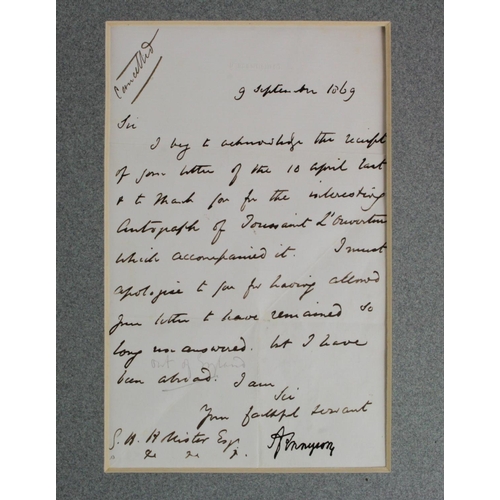 Cancelled
9 September 1869
Sir
I beg to acknowledge the receipt
of your letter of the 10 April last
& to thank you for the interesting
Autograph of Toussaint L'Ouverture
which accompanied it. I must
apologise to you for having allowed
your letter to have remained so
long unanswered. but I have
been abroad. I am
Sir
Your faithful servant
Esq